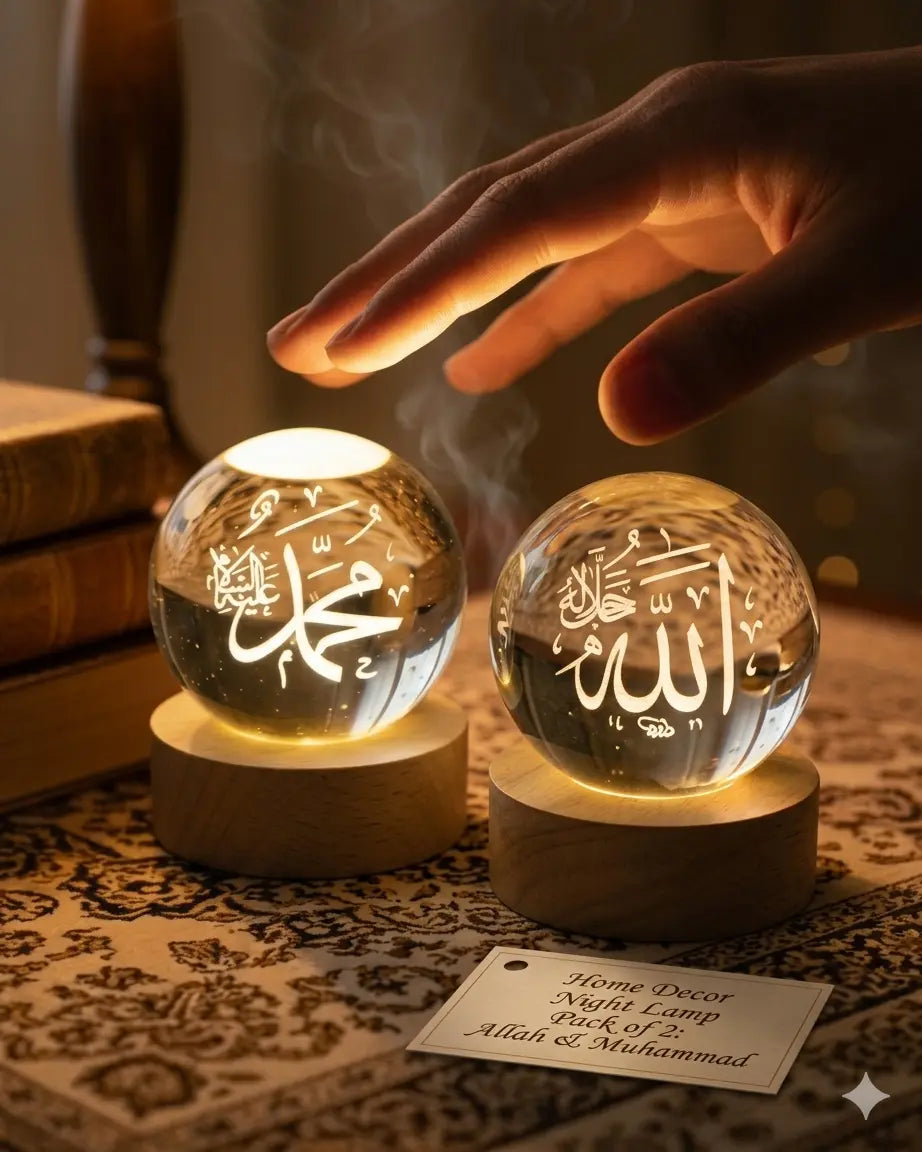 محمد
عليه السلام
الله
جل جلاله
Home Decor
Night Lamp
Pack of 2:
Allah & Muhammad